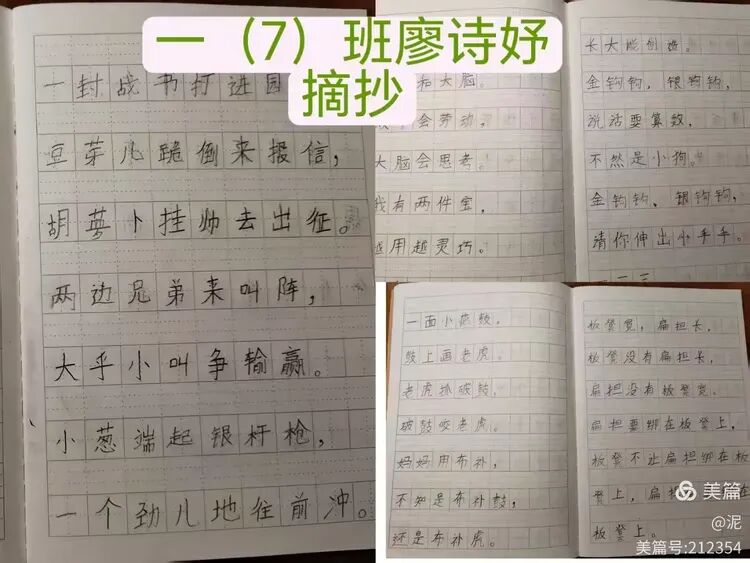 一（7）班廖诗妤
摘抄
一封战书打进园
豆芽儿跪倒来报信，
胡萝卜挂帅去出征。
两边兄弟来叫阵，
大乎小叫争输赢。
小葱端起银杆枪，
一个劲儿地往前冲。
和大脑。
会劳动，
大脑会思考。
我有两件宝，
越用越灵巧。
长大能创造。
金钩钩，银钩钩，
说话要算数，
不然是小狗。
金钩钩，银钩钩，
请你伸出小手手，
一面小花鼓，
鼓上画老虎。
老虎抓破鼓，
破鼓咬老虎。
妈妈用布补，
不知是布补鼓，
还是布补虎。
板凳宽，扁担长，
板凳没有扁担长，
扁担没有板凳宽。
扁担要绑在板凳上，
板凳不让扁担绑在板
凳上，扁担
板凳上。
美篇
@泥
美篇号:212354